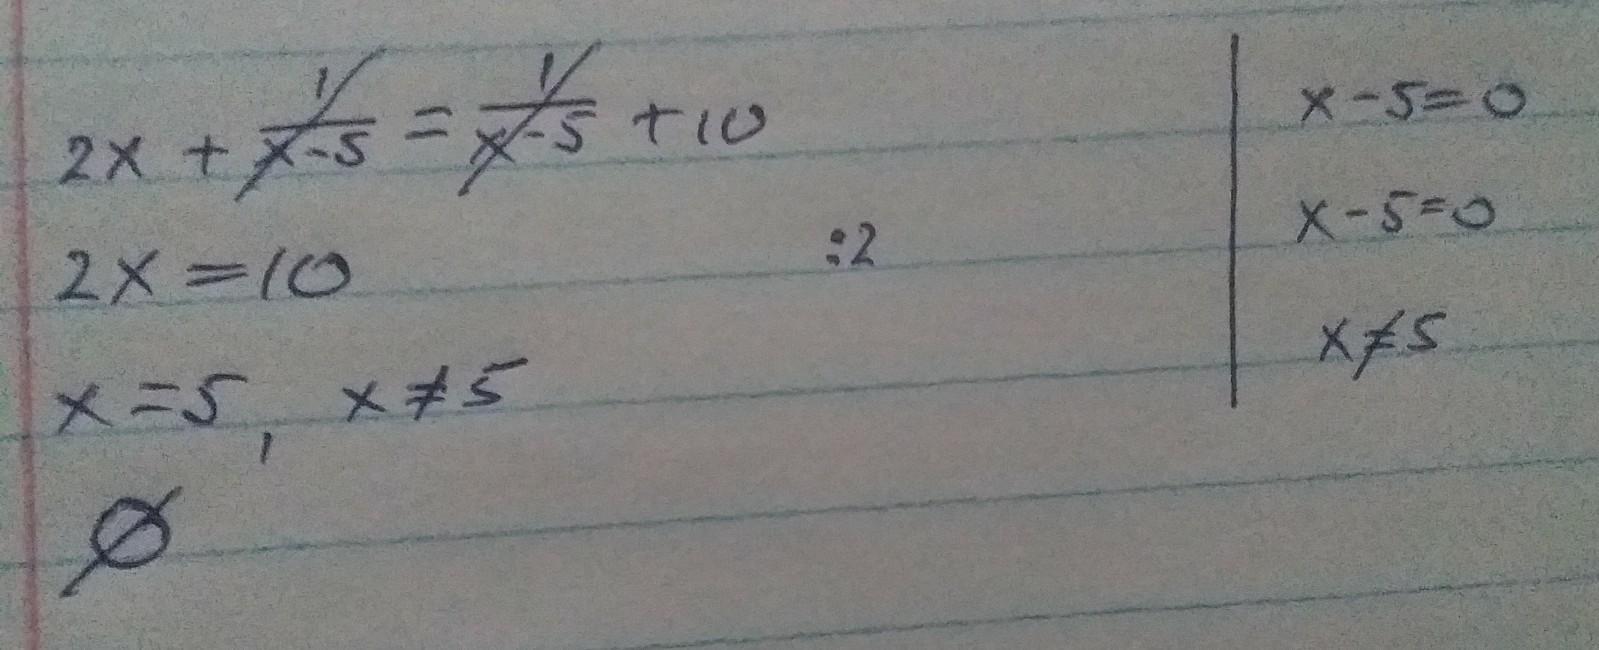 2x + 1/(x-5) = 1/(x-5) + 10
2x = 10 :2
x = 5, x ≠ 5
∅
x - 5 = 0
x - 5 = 0
x ≠ 5